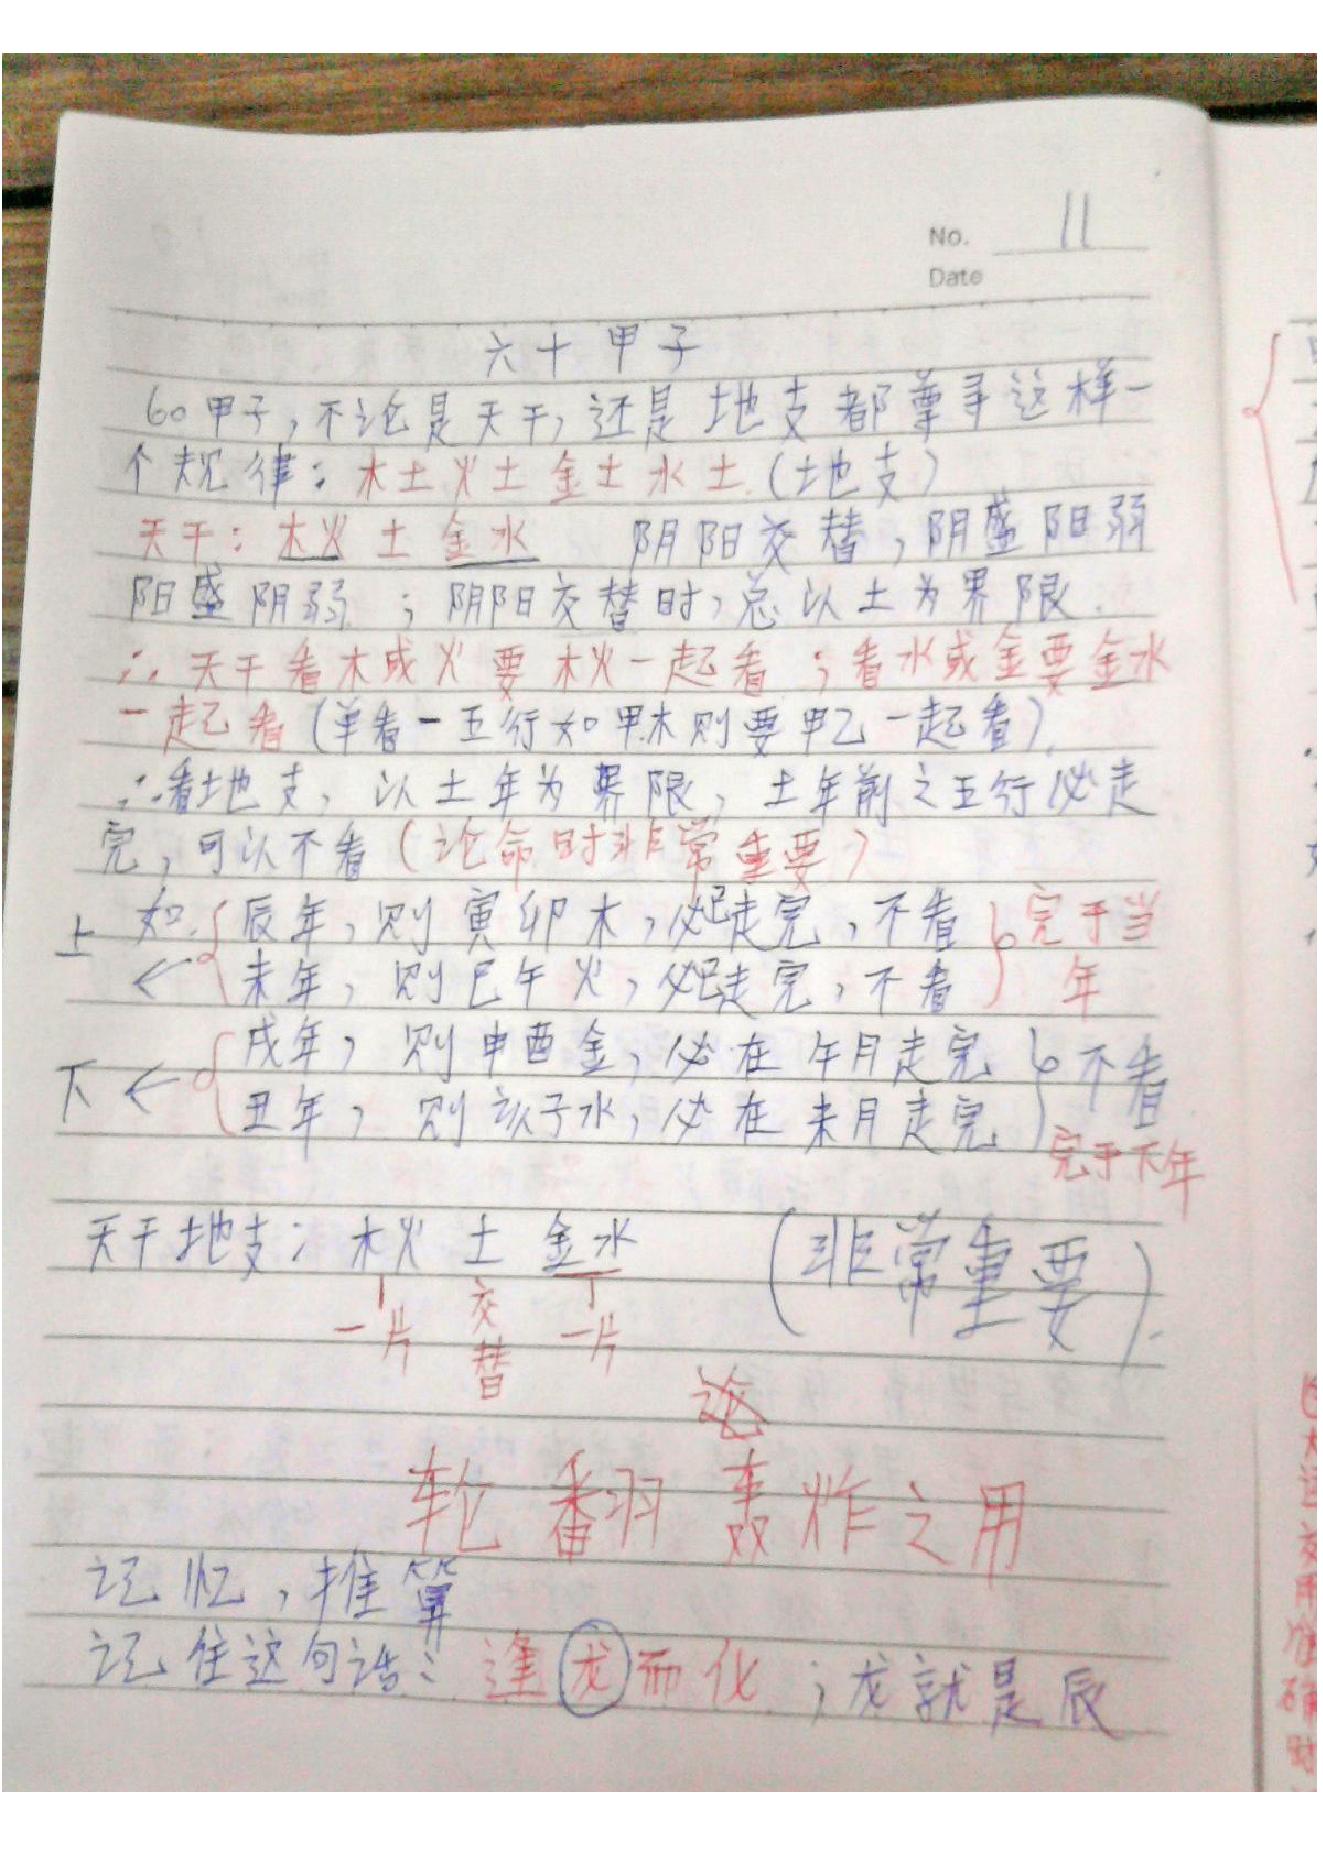 No. 11
Date
六十甲子
60甲子，不论是天干，还是地支都尊寻这样一
个规律：木土火土金土水土（地支）
天干：木火土金水 阴阳交替，阴盛阳弱
阳盛阴弱；阴阳交替时，总以土为界限.
∴天干看木或火要木火一起看；看水或金要金水
一起看（单看一五行如甲木则要甲乙一起看）.
∴看地支，以土年为界限，土年前之五行必走
完，可以不看（论命时非常重要）
上 如. 辰年，则寅卯木，必已走完，不看 完于当
← 未年，则巳午火，必已走完，不看 年
戌年，则申酉金，必在午月走完 不看
下 ← 丑年，则亥子水，必在未月走完
完于下年
天干地支：木火土金水 （非常重要）.
一片 交替 一片
轮番羽轰炸之用
记忆，推算
记住这句话：逢龙而化；龙就是辰